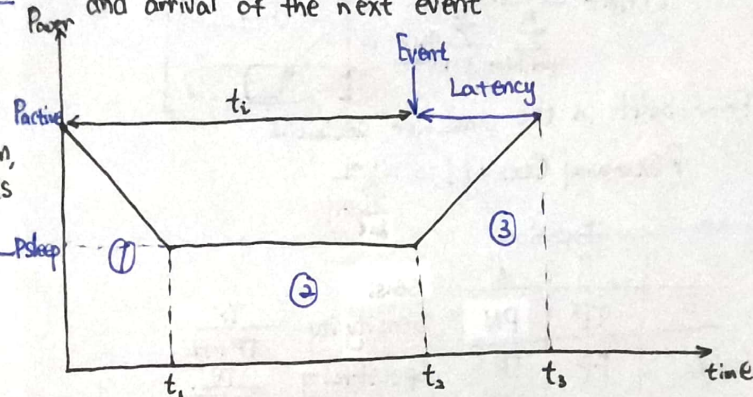 and arrival of the next event
Power
Event
Latency
Pactive
ti
n,
s
Psleep
①
②
③
t1
t2
t3
time